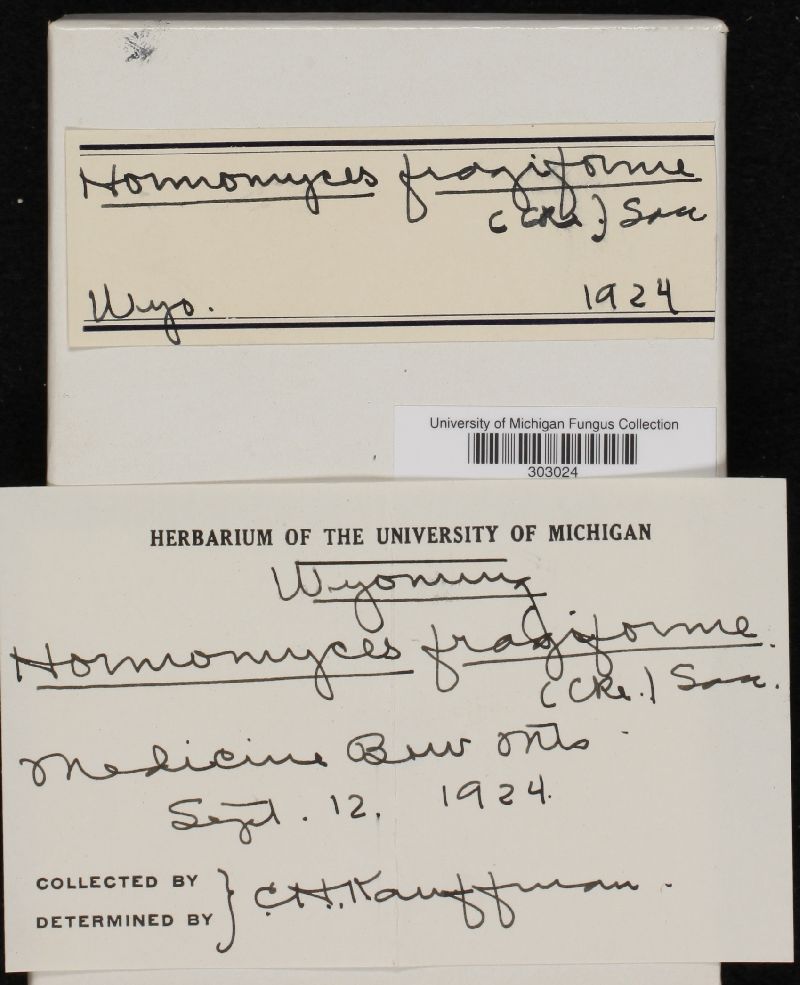 Hormomyces fragiforme
(Cke.) Sacc
Wyo. 1924
University of Michigan Fungus Collection
303024
HERBARIUM OF THE UNIVERSITY OF MICHIGAN
Wyoming
Hormomyces fragiforme.
(Cke.) Sacc.
Medicine Bow Mts.
Sept. 12, 1924.
COLLECTED BY
DETERMINED BY } C.H. Kauffman.